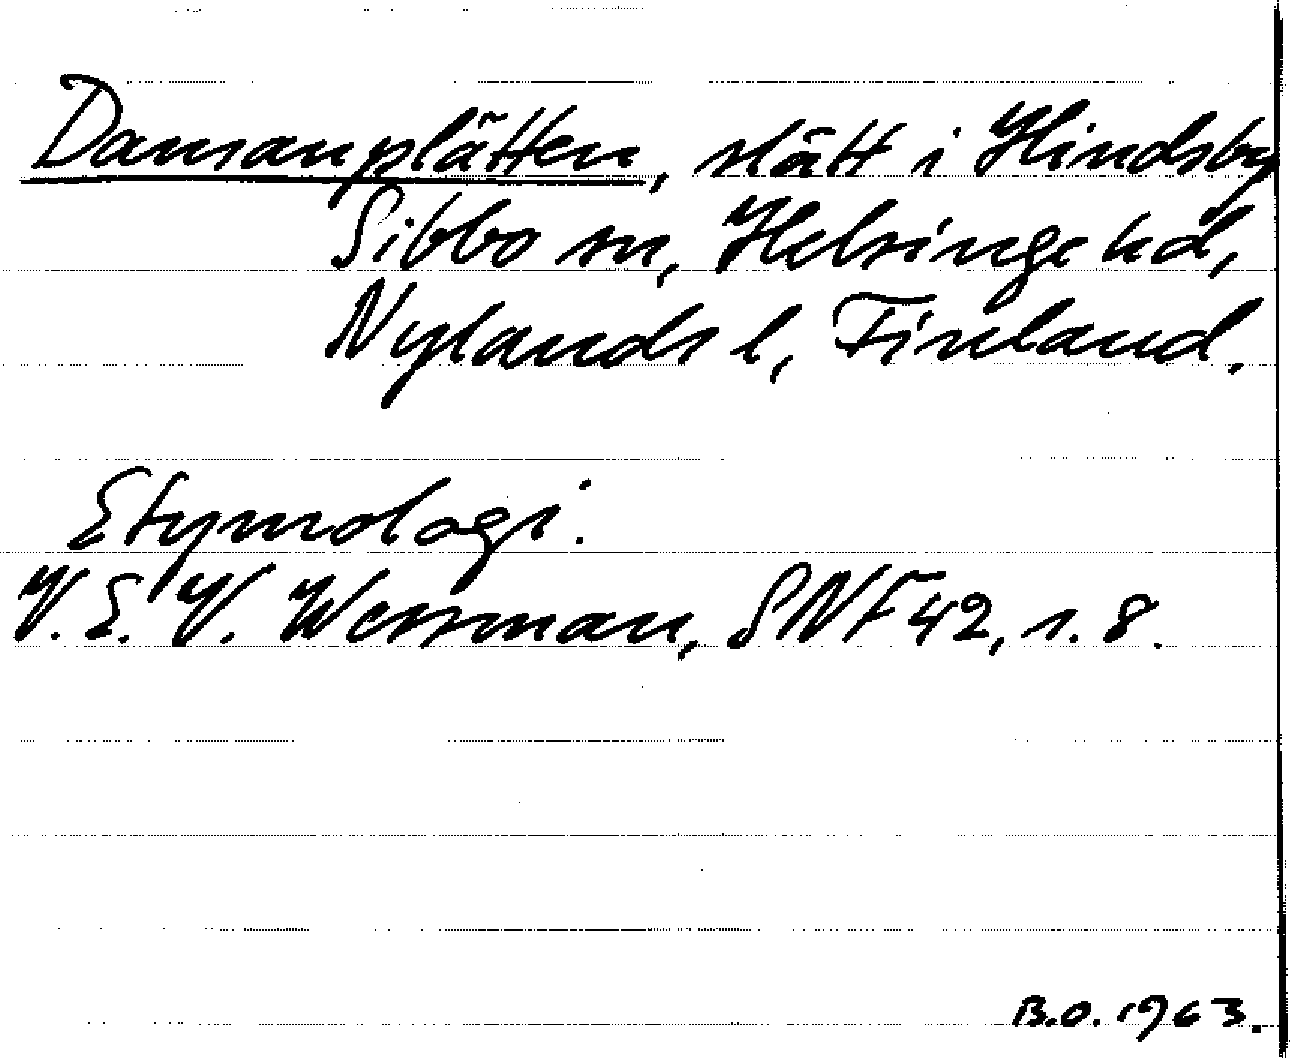 Dansanplätten, slätt i Hindsby
Sibbo sn, Helsinge hd,
Nylands l, Finland.
Etymologi.
V. E. V. Wessman, SNF 42, s. 8.
B.O. 1963.